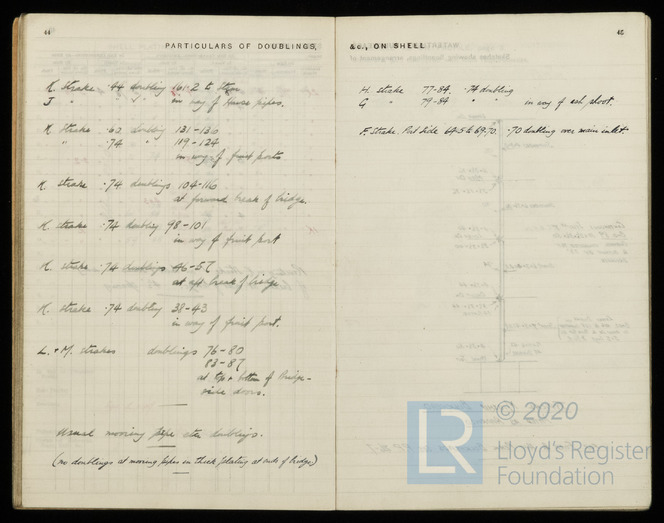 44
PARTICULARS OF DOUBLINGS,
K. Strake .44 doubling 161-2 to Stem
J " " " in way of Hawse pipes.
K Strake .60 doubling 131-136
" .74 " 119-124
in way of fruit ports
K strake .74 doublings 104-116
at forward break of bridge.
K strake .74 doubling 98-101
in way of fruit port
K. strake .74 doublings 46-57
at aft break of bridge
K. strake .74 doubling 38-43
in way of fruit port.
L. & M. strakes doublings 76-80
83-87
at top & bottom of Bridge-
side doors.
Usual mooring pipe etc doublings.
(no doublings at mooring pipes in thick plating at ends of bridge)
45
&c., ON SHELL
H. strake 77-84. .74 doubling
G " 79-84 " " in way of ash shoot.
F. Strake. Port side 64.5 to 69-70. .70 doubling over main inlet.
© 2020
LR
Lloyd's Register
Foundation